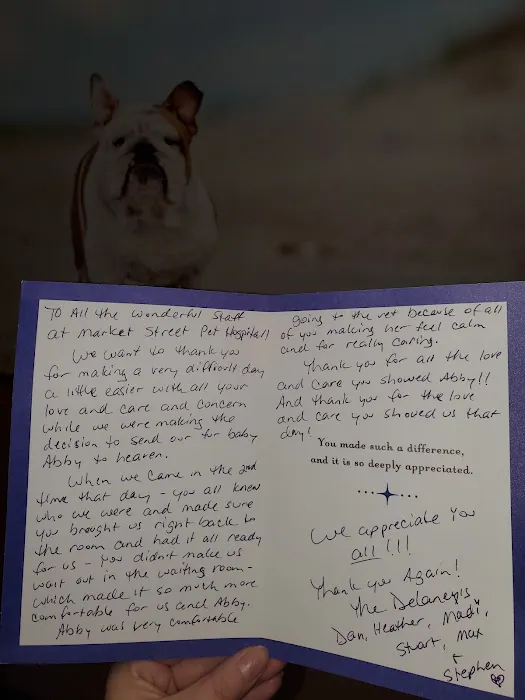 TO All the wonderful Staff
at Market Street Pet Hospital!
We want to thank you
for making a very difficult day
a little easier with all your
love and care and concern
while we were making the
decision to send our fur baby
Abby to heaven.
When we came in the 2nd
time that day - you all knew
who we were and made sure
you brought us right back to
the room and had it all ready
for us - you didn't make us
wait out in the waiting room -
which made it so much more
comfortable for us and Abby.
Abby was very comfortable
going to the vet because of all
of you making her feel calm
and for really caring.
Thank you for all the love
and care you showed Abby!!
And thank you for the love
and care you showed us that
day!
You made such a difference,
and it is so deeply appreciated.
We appreciate you
all!!!
Thank you Again!
The Delaney's
Dan, Heather, Madi,
Stuart, Max
+
Stephen